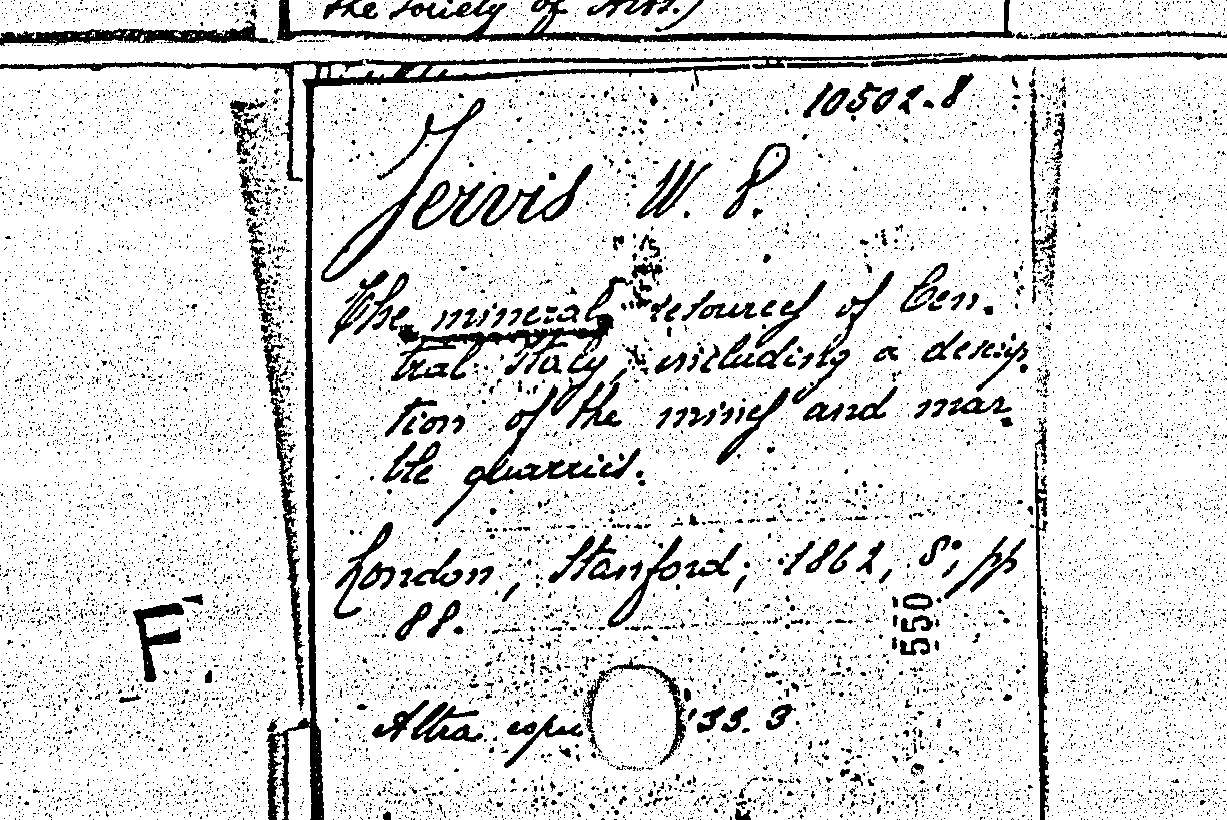 the Society of Arts.)
10502.8
Jervis W. P.
The mineral resources of Cen-
tral Italy, including a descrip-
tion of the mines and mar-
ble quarries.
London, Stanford, 1862, 8°, pp
88.
550
Altra copia 33.3
F